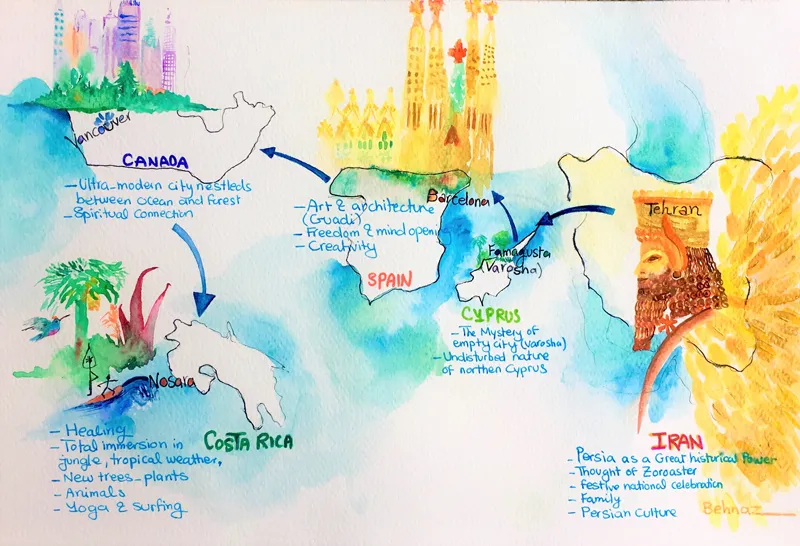 Vancouver
CANADA
- Ultra-modern city nestleds
between ocean and forest
- Spiritual connection
Barcelona
- Art & architecture
(Guadi)
- Freedom & mind opening
- Creativity
SPAIN
Famagusta
(Varosha)
CYPRUS
- The Mystery of
empty city (varosha)
- Undisturbed nature
of northen Cyprus
Tehran
IRAN
- Persia as a Great historical Power
- Thought of Zoroaster
- Festive national celebration
- Family
- Persian Culture
Behnaz
Nosara
COSTA RICA
- Healing
- Total immersion in
jungle, tropical weather,
- New trees-plants
- Animals
- Yoga & surfing